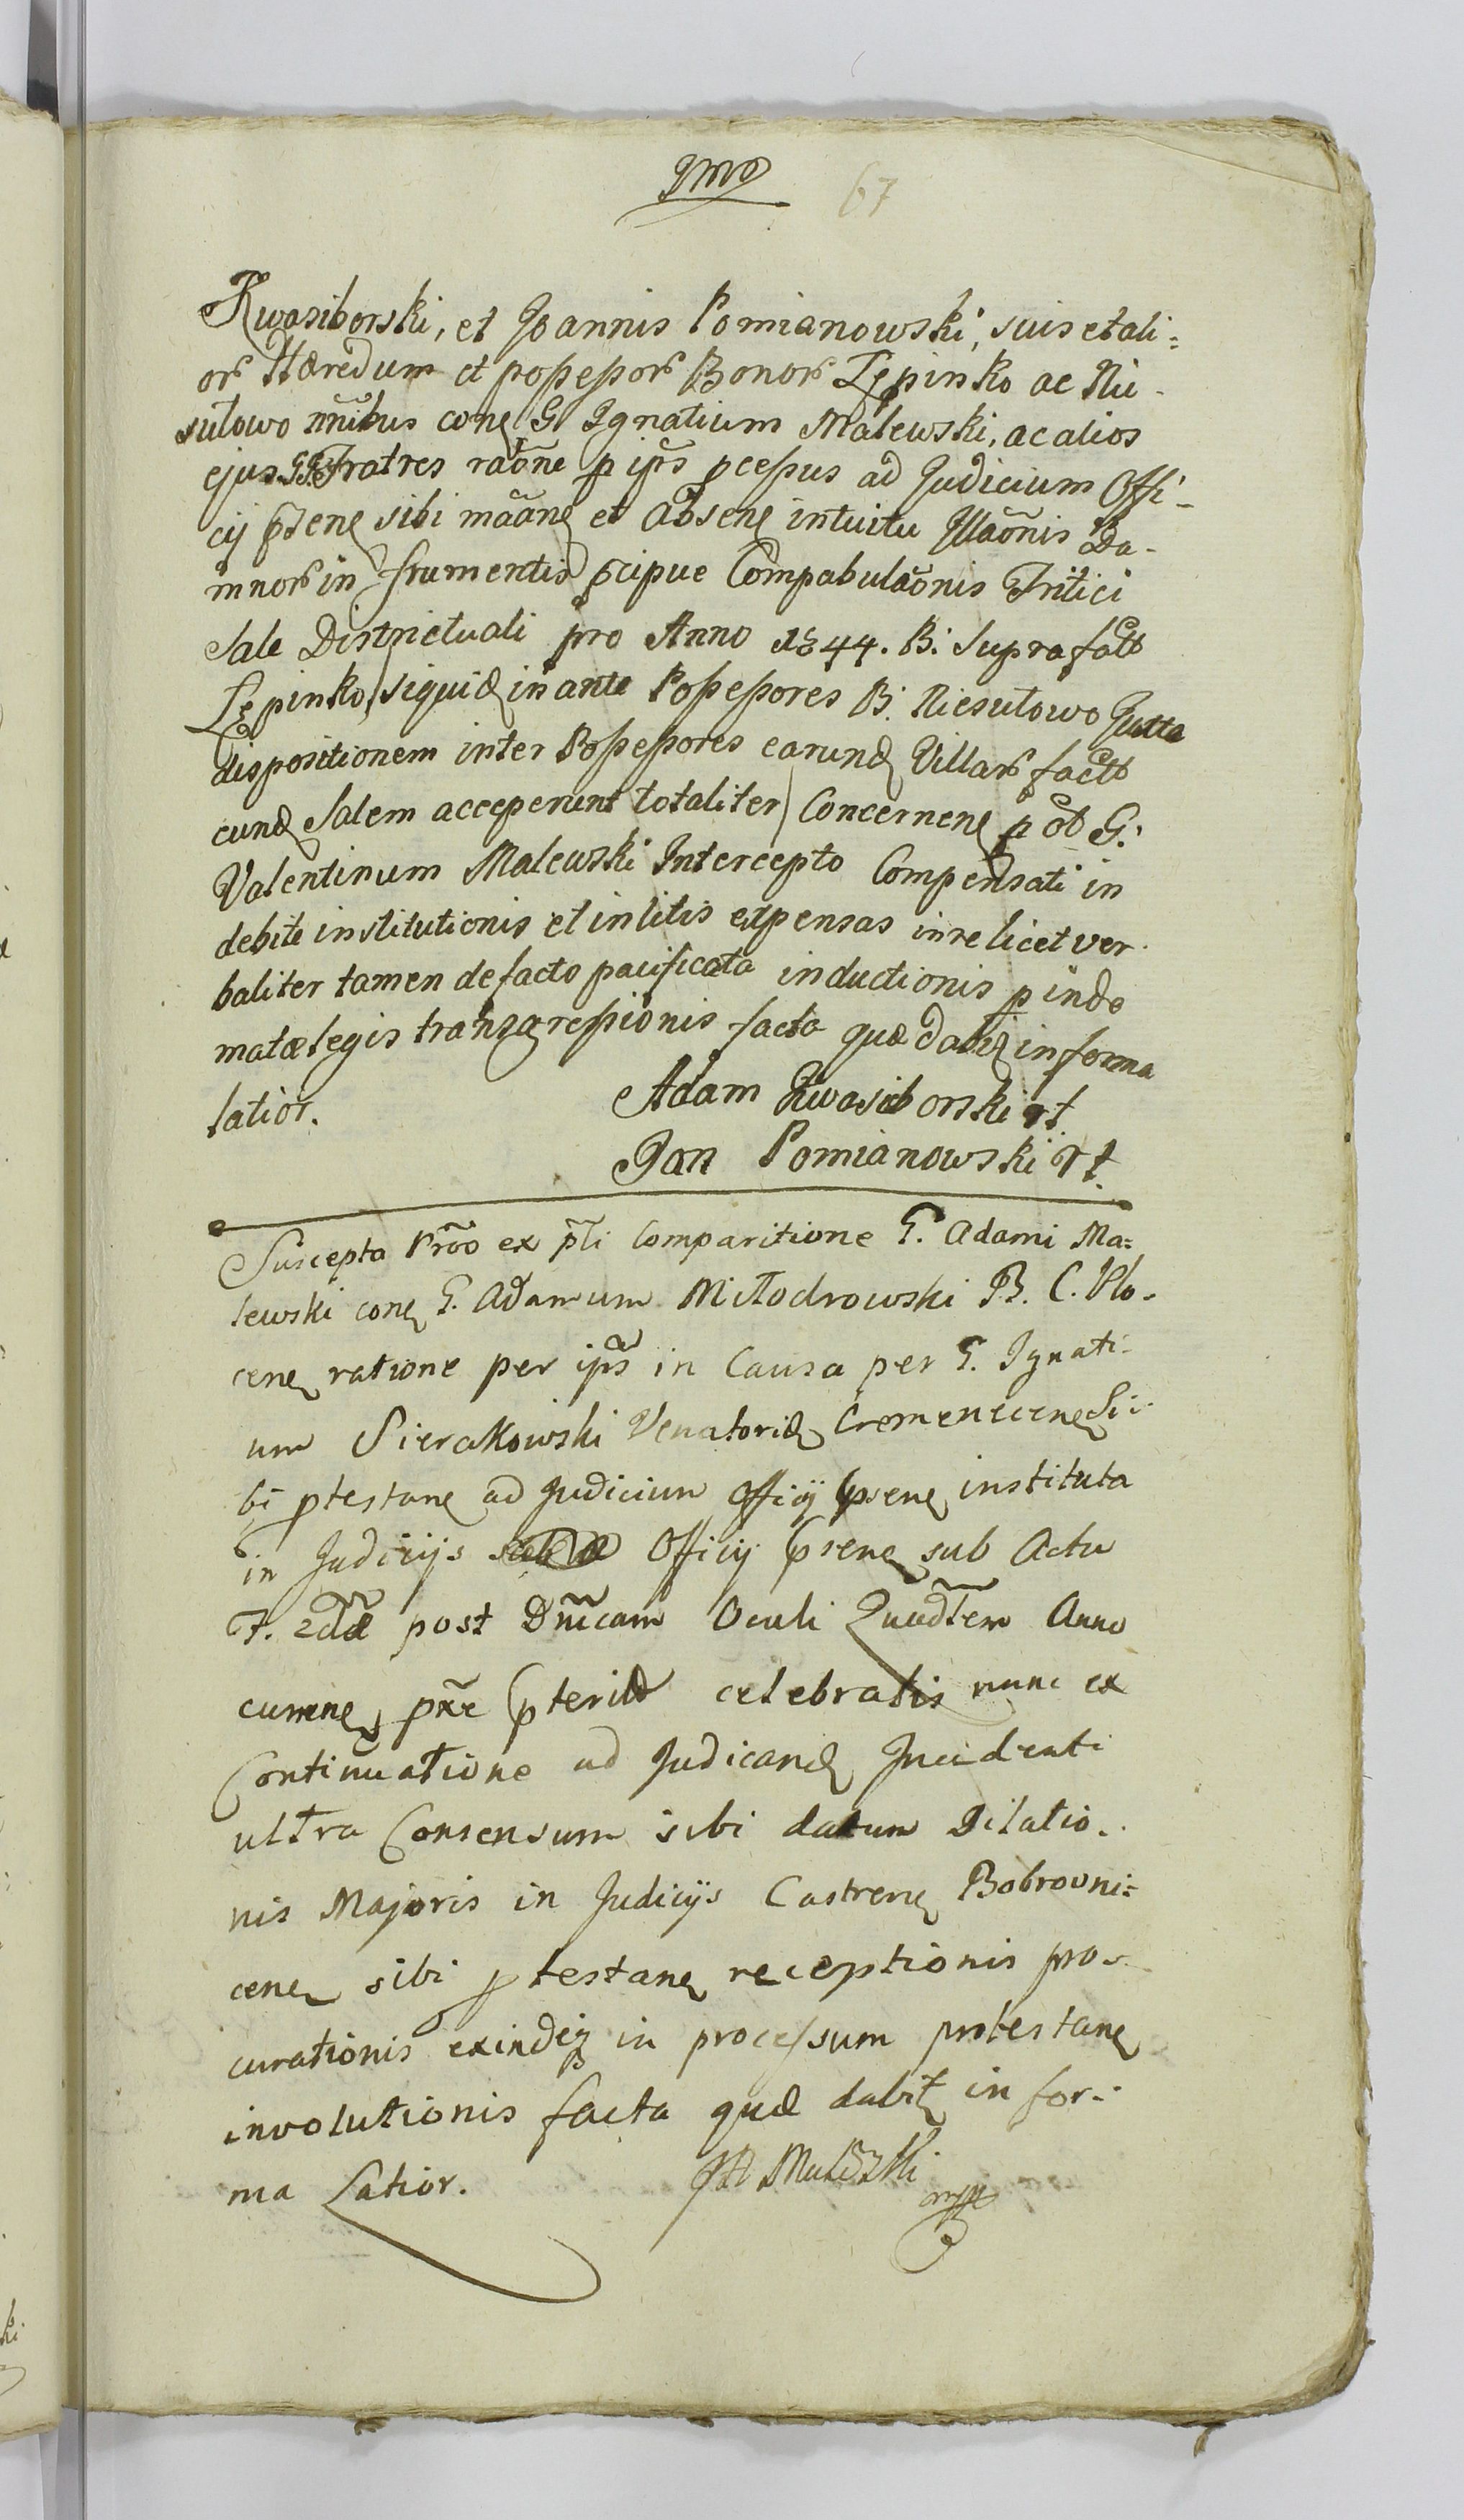 67
Kwasiborski, et Joannis Pomianowski, suis et ali=
or Hæredum et possessor Bonor Lępinko ac Nie-
sułowo nnībus conq G Ignatium Malewski, ac alios
ejus GG. Fratres raõne p ips pcessus ad Judicium Offi-
cij ptenq sibi mãanq et absenq intuitu Illaõnis Da-
mnor in frumentis pcipue Compabulaõnis Tritici
Sale Districtuali pro Anno 1844. B. Supra fatt
Lępinko, siquid in ante Possessores B. Niesułowo Juxta
dispositionem inter Possessores earund Villar factt
eund Salem acceperunt totaliter) Concernenq p ot G.
Valentinum Malewski Intercepto Compensati in
debite institutionis et in litis expensas in re licet ver
baliter tamen de facto pacificata inductionis p inde
matæ legis transgressionis facta quæ dabiq in forma
latior.
Adam Kwasiborski
Jan Pomianowski
Suscepta Prõo ex pti Comparitione G. Adami Ma=
lewski conq G. Adamum Miłodrowski B. C. Plo-
cenq ratione per ips in Causa per G. Ignati-
um Sierakowski Venatorid Cremenecenq Si-
bi ptestanq ad Judicium Officij psenq instituta
in Judicijs Officij psenq sub Actu
F. 2dã post Dnĩcam Oculi Quadtem Anno
currenq pñte pteritt celebratis nunc ex
Continuatione ad Judicand Incidenti
ultra Consensum sibi datum Dilatio-
nis Majoris in Judicijs Castrenq Bobrovni=
cenq sibi ptestanq receptionis pro-
curationis exindeq in processum protestanq
involutionis facta quæ dabitq in for-
ma Latior.